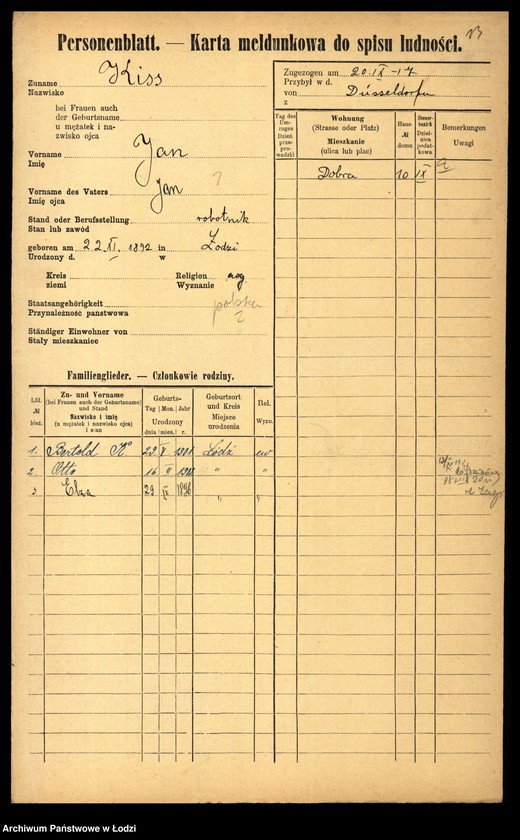 Personenblatt. — Karta meldunkowa do spisu ludności.
Zuname Kiss
Nazwisko
bei Frauen auch
der Geburtsname
u mężatek i na-
zwisko ojca
Vorname Jan
Imię
Vorname des Vaters Jan ?
Imię ojca
Stand oder Berufsstellung robotnik
Stan lub zawód
geboren am 22 XI. 1892 in Łodzi
Urodzony d. w
Kreis Religion ewg
ziemi Wyznanie
Staatsangehörigkeit polska
Przynależność państwowa ?
Ständiger Einwohner von
Stały mieszkaniec
Familienglieder. — Członkowie rodziny.
Lfd. № bież.
Zu- und Vorname
(bei Frauen auch der Geburtsname)
und Stand
Nazwisko i imię
(u mężatek i nazwisko ojca)
i stan
Geburts-
Tag Mon. Jahr
Urodzony
dnia mies. r.
Geburtsort
und Kreis
Miejsce
urodzenia
Rel.
Wyzn.
1. Bertold K. 23 V Łódź ew
2. Otto 16 II " "
3 Elza 29 IX 1896 " "
Zugezogen am 20 IX - 17
Przybył w d.
von Düsseldorfu
z
Tag des
Um-
zuges
Dzień
prze-
prowadzki
Wohnung
(Strasse oder Platz)
Mieszkanie
(ulica lub plac)
Haus-
№
domu
Steuer-
bezirk
Dziel-
nica
podat-
kowa
Bemerkungen
Uwagi
Dobra 10 IX
Archiwum Państwowe w Łodzi